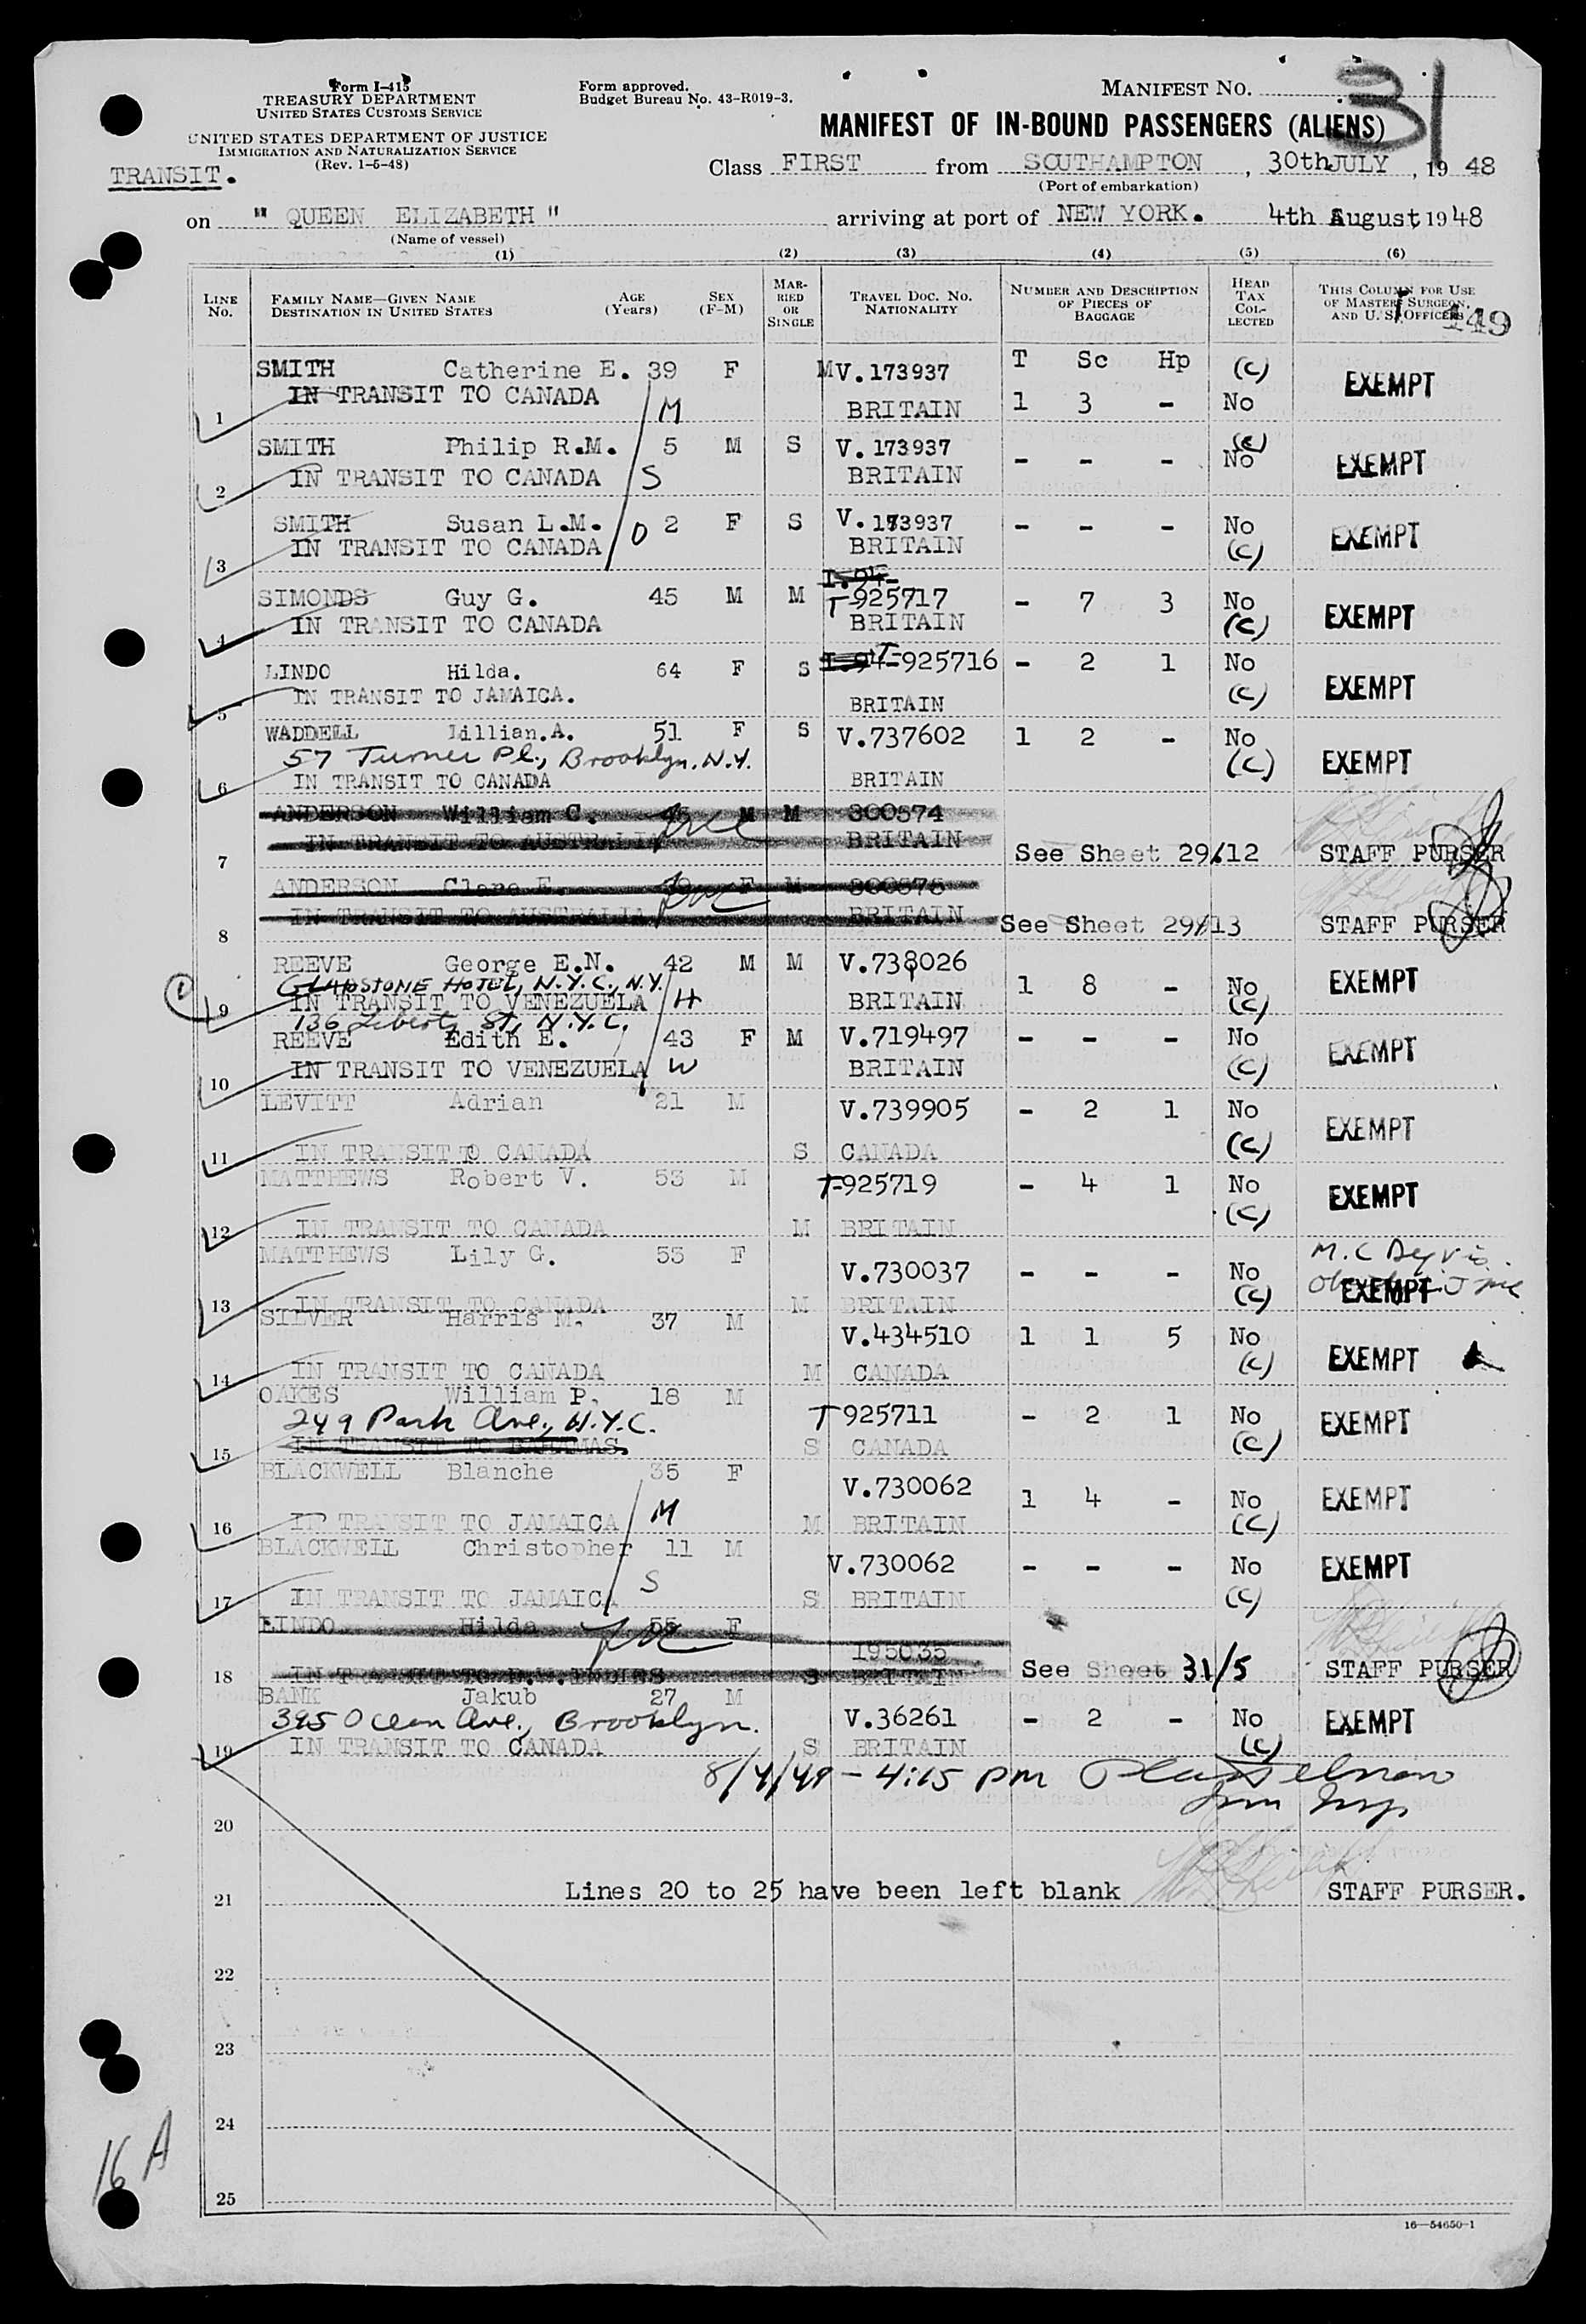 Form I-415
TREASURY DEPARTMENT
UNITED STATES CUSTOMS SERVICE
UNITED STATES DEPARTMENT OF JUSTICE
IMMIGRATION AND NATURALIZATION SERVICE
(Rev. 1-5-48)
TRANSIT.
Form approved.
Budget Bureau No. 43-R019-3.
MANIFEST NO.
31
MANIFEST OF IN-BOUND PASSENGERS (ALIENS)
Class FIRST from SOUTHAMPTON, 30th JULY, 19 48
(Port of embarkation)
on " QUEEN ELIZABETH " arriving at port of NEW YORK. 4th August, 1948
(Name of vessel)
(1) (2) (3) (4) (5) (6)
LINE No. FAMILY NAME—GIVEN NAME DESTINATION IN UNITED STATES AGE (Years) SEX (F-M) MARRIED OR SINGLE TRAVEL DOC. NO. NATIONALITY NUMBER AND DESCRIPTION OF PIECES OF BAGGAGE HEAD TAX COLLECTED THIS COLUMN FOR USE OF MASTER, SURGEON, AND U. S. OFFICERS
149
T Sc Hp
SMITH Catherine E. 39 F M V.173937 (C) EXEMPT
1 IN TRANSIT TO CANADA M BRITAIN 1 3 - No
SMITH Philip R.M. 5 M S V.173937 - - - (C) No EXEMPT
2 IN TRANSIT TO CANADA S BRITAIN
SMITH Susan L.M. 2 F S V.173937 - - - No EXEMPT
3 IN TRANSIT TO CANADA D BRITAIN (C)
I.94-
SIMONDS Guy G. 45 M M T-925717 - 7 3 No EXEMPT
4 IN TRANSIT TO CANADA BRITAIN (C)
LINDO Hilda. 64 F S I-94 T-925716 - 2 1 No EXEMPT
5 IN TRANSIT TO JAMAICA. BRITAIN (C)
WADDELL Lillian.A. 51 F S V.737602 1 2 - No EXEMPT
57 Turner Pl., Brooklyn. N.Y. (C)
6 IN TRANSIT TO CANADA BRITAIN
ANDERSON William C. 45 M M 300574
7 IN TRANSIT TO AUSTRALIA BRITAIN See Sheet 29/12 STAFF PURSER
ANDERSON Clare E. 39 F M
8 IN TRANSIT TO AUSTRALIA BRITAIN See Sheet 29/13 STAFF PURSER
REEVE George E.N. 42 M M V.738026 EXEMPT
GLADSTONE HOTEL, N.Y.C., N.Y.
9 IN TRANSIT TO VENEZUELA H BRITAIN 1 8 - No (C)
136 Liberty St, N.Y.C.
REEVE Edith E. 43 F M V.719497 - - - No EXEMPT
10 IN TRANSIT TO VENEZUELA W BRITAIN (C)
LEVITT Adrian 21 M V.739905 - 2 1 No EXEMPT
11 IN TRANSIT TO CANADA S CANADA (C)
MATTHEWS Robert V. 53 M T-925719 - 4 1 No EXEMPT
12 IN TRANSIT TO CANADA M BRITAIN (C)
MATTHEWS Lily G. 55 F V.730037 - - - No EXEMPT
13 IN TRANSIT TO CANADA M BRITAIN (C)
SILVER Harris M. 37 M V.434510 1 1 5 No EXEMPT
14 IN TRANSIT TO CANADA M CANADA (C)
OAKES William P. 18 M T 925711 - 2 1 No EXEMPT
249 Park Ave., N.Y.C.
15 IN TRANSIT TO BAHAMAS. S CANADA (C)
BLACKWELL Blanche 35 F V.730062 1 4 - No EXEMPT
16 IN TRANSIT TO JAMAICA M M BRITAIN (C)
BLACKWELL Christopher 11 M V.730062 - - - No EXEMPT
17 IN TRANSIT TO JAMAICA S S BRITAIN (C)
LINDO Hilda 55 F 195035
18 IN TRANSIT TO S BRITAIN See Sheet 31/5 STAFF PURSER
BANK Jakub 27 M V.36261 - 2 - No EXEMPT
395 Ocean Ave., Brooklyn.
19 IN TRANSIT TO CANADA S BRITAIN (C)
8/4/48 - 4:15 PM
20
21 Lines 20 to 25 have been left blank STAFF PURSER.
22
23
24
25
16 A
16—54650-1